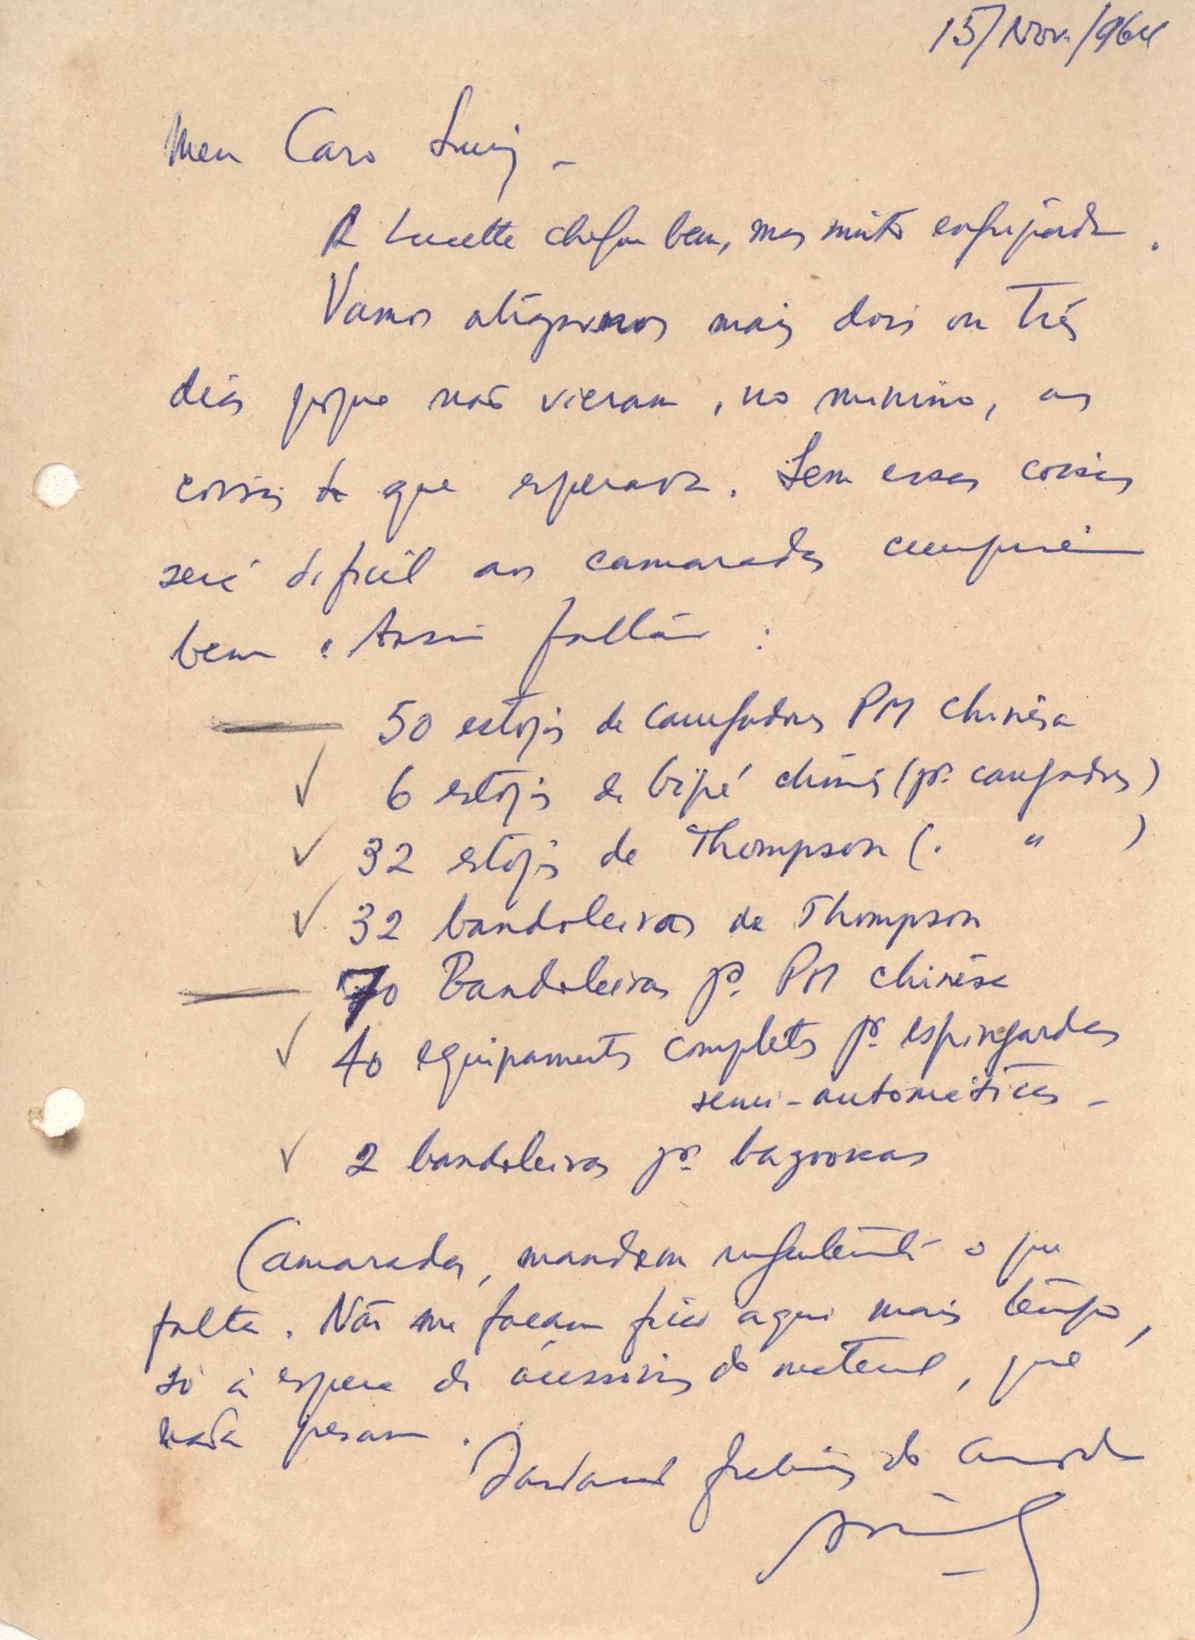 15/Nov./964
Meu Caro Luiz –
A Lucette chegou bem, mas muito enferrujada.
Vamos atrazarnos mais dois ou três
dias porque não vieram, no minimo, as
coisas de que esperava. Sem essas coisas
será dificil aos camaradas cumprirem
bem. Assim faltam:
50 estojos de carregadores PM chinêsa
6 estojos de bipé chinês (pª. carregadores)
32 estojos de Thompson (. " )
32 bandoleiras de Thompson
70 Bandoleiras pª. PM chinêsa
40 equipamentos completos pª. espingardas
semi-automáticas –
2 bandoleiras pª. bazookas
Camaradas, mandem urgentemente o que
falta. Não me façam ficar aqui mais tempo,
só à espera de acessórios do material, que
nada pesam.
do camarada